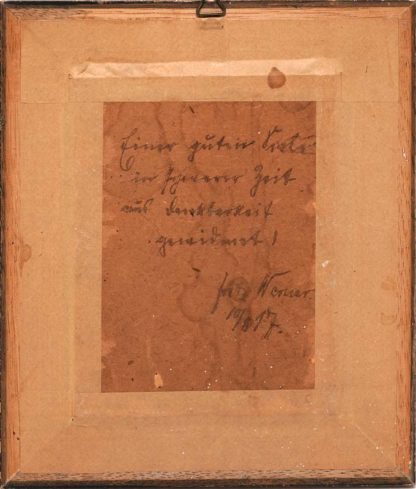 Einer guten Seele
in schwerer Zeit
aus Dankbarkeit
gewidmet!
Fritz Werner
17.